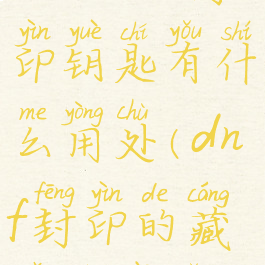 yìn yuè chí yǒu shí
印钥匙有什
me yòng chù
么用处(dn
fēng yìn de cáng
f封印的藏